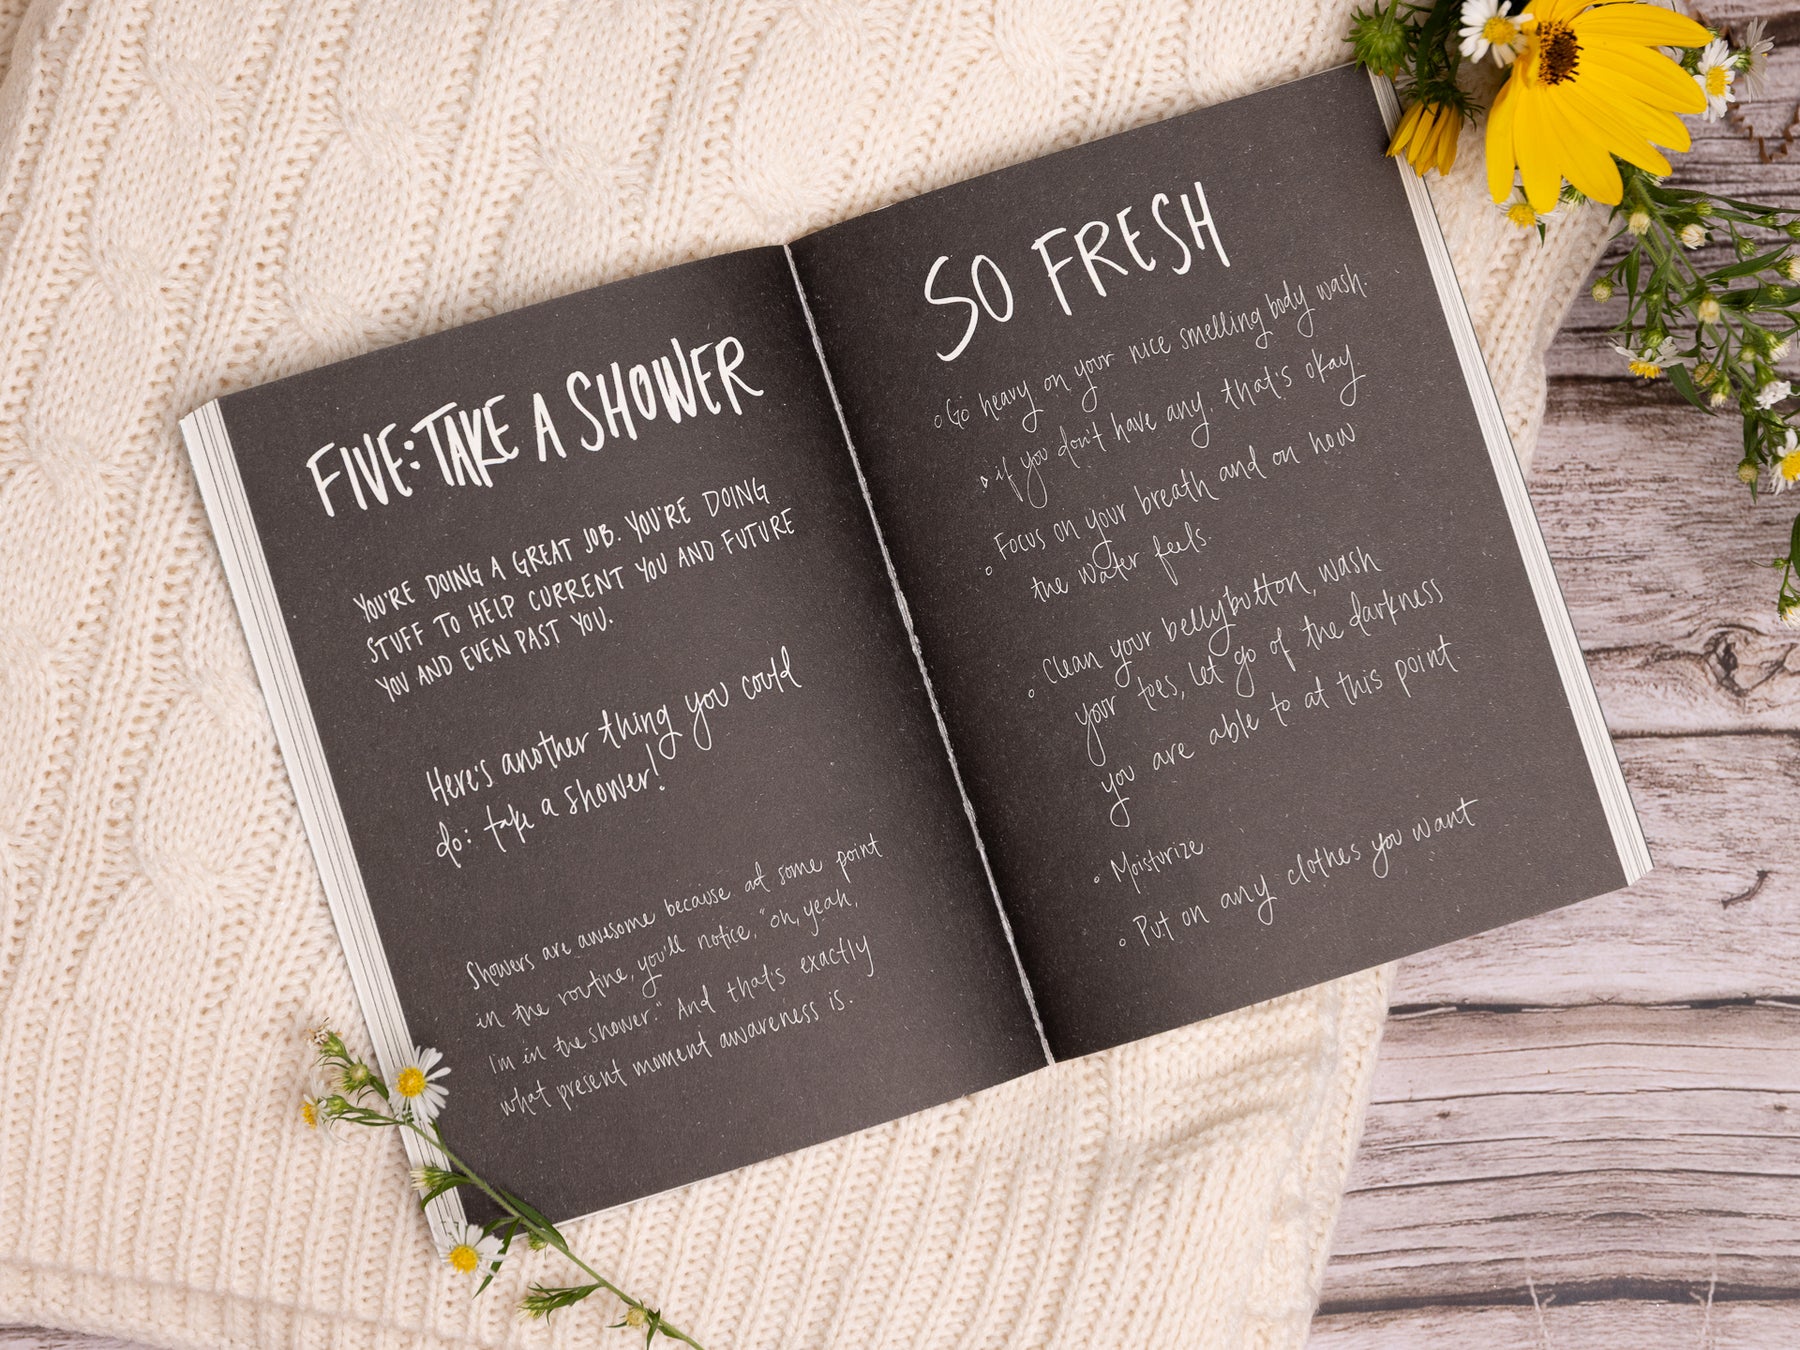 FIVE: TAKE A SHOWER
YOU'RE DOING A GREAT JOB. YOU'RE DOING
STUFF TO HELP CURRENT YOU AND FUTURE
YOU AND EVEN PAST YOU.
Here's another thing you could
do: take a shower!
Showers are awesome because at some point
in the routine, you'll notice, "oh, yeah,
I'm in the shower." And that's exactly
what present moment awareness is.
SO FRESH
◦ Go heavy on your nice smelling body wash.
◦ if you don't have any, that's okay
◦ Focus on your breath and on how
the water feels.
◦ Clean your bellybutton, wash
your toes, let go of the darkness
you are able to at this point
◦ Moisturize
◦ Put on any clothes you want